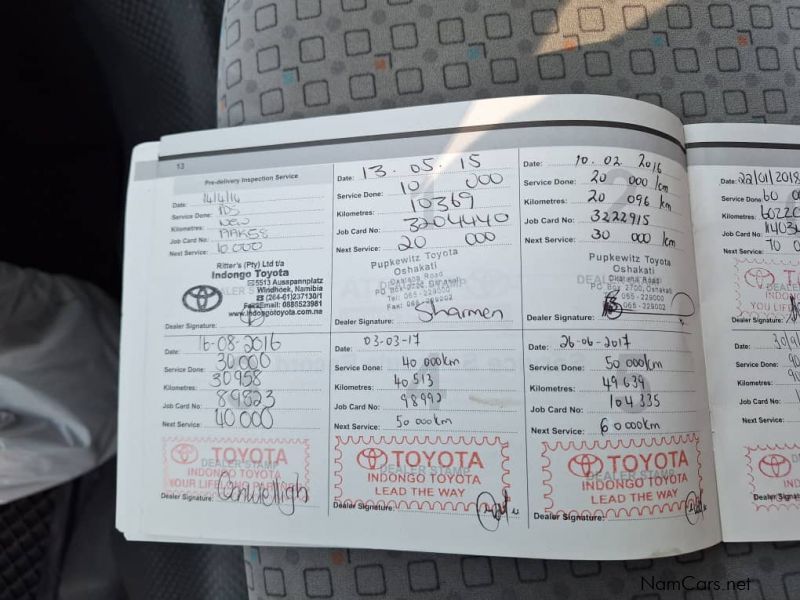 13
Pre-delivery Inspection Service
Date: 14/4/14
Service Done: PDS
Kilometres:
Job Card No:
Next Service: 10 000
Ritter's (Pty) Ltd t/a
Indongo Toyota
5513 Ausspannplatz
Windhoek, Namibia
(264-61)237130/1
Fax/Email: 0886523981
www.indongotoyota.com.na
Dealer Signature:
Date: 13.05.15
Service Done: 10 000
Kilometres: 10369
Job Card No: 3204440
Next Service: 20 000
1
Pupkewitz Toyota
Oshakati
Okatana Road
PO Box 2700, Oshakati
Tel: 065 - 229000
Fax: 065 - 229002
Dealer Signature: Sharmen
Date: 10.02 2016
Service Done: 20 000 km
Kilometres: 20 096 km
Job Card No: 3222915
Next Service: 30 000 km
2
Pupkewitz Toyota
Oshakati
Okatana Road
PO Box 2700, Oshakati
065 - 229000
065 - 229002
Dealer Signature:
Date: 22/01/2018
Service Done: 60 00
Kilometres: 60220
Job Card No:
Next Service: 70 0
TOYOTA
INDONGO
YOU LIFE
Dealer Signature:
Date: 16-08-2016
Service Done: 30 000
Kilometres: 30958
Job Card No: 89823
Next Service: 40 000
TOYOTA
DEALER STAMP
INDONGO TOYOTA
Dealer Signature:
Date: 03-03-17
Service Done: 40 000km
Kilometres: 40 513
Job Card No: 98992
Next Service: 50 000km
4
TOYOTA
DEALER STAMP
INDONGO TOYOTA
LEAD THE WAY
Dealer Signature:
Date: 26-06-2017
Service Done: 50 000km
Kilometres: 49 639
Job Card No: 104 335
Next Service: 60 000km
5
TOYOTA
DEALER STAMP
INDONGO TOYOTA
LEAD THE WAY
Dealer Signature:
Date:
Service Done:
Kilometres:
Job Card No:
Next Service:
TO
INDONG
Dealer Signature:
NamCars.net